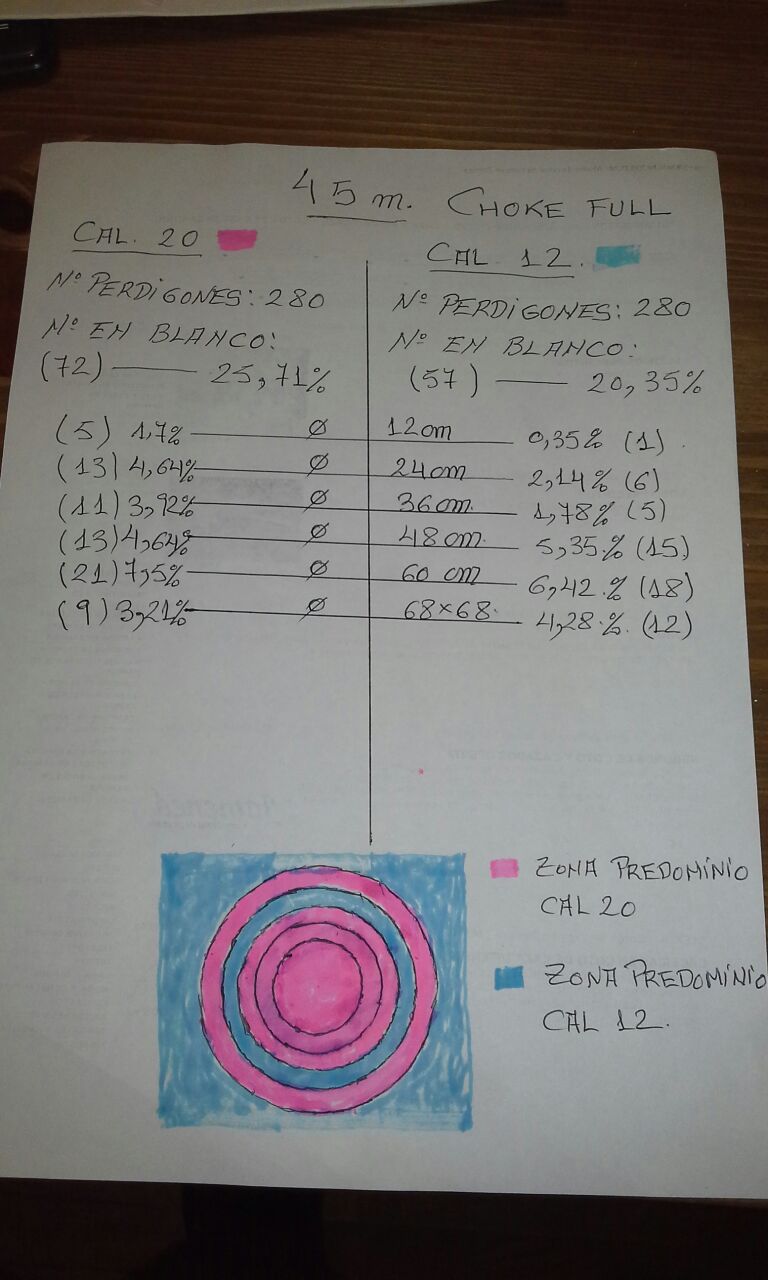 45 m. CHOKE FULL
CAL. 20
Nº PERDIGONES: 280
Nº EN BLANCO:
(72) — 25,71%
CAL 12.
Nº PERDIGONES: 280
Nº EN BLANCO:
(57) — 20,35%
(5) 1,7% — Ø 12cm — 0,35% (1)
(13) 4,64% — Ø 24cm — 2,14% (6)
(11) 3,92% — Ø 36cm — 1,78% (5)
(13) 4,64% — Ø 48cm — 5,35% (15)
(21) 7,5% — Ø 60 cm — 6,42% (18)
(9) 3,21% — Ø 68x68 — 4,28% (12)
ZONA PREDOMÍNIO
CAL 20
ZONA PREDOMÍNIO
CAL 12.